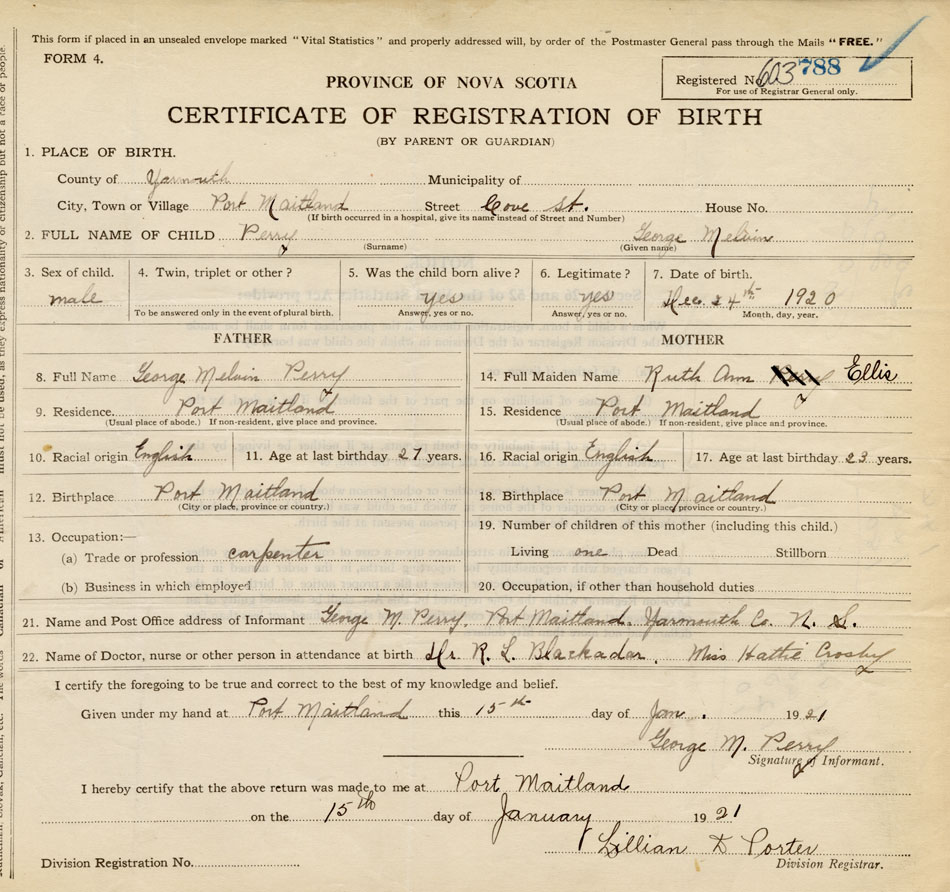 This form if placed in an unsealed envelope marked "Vital Statistics" and properly addressed will, by order of the Postmaster General pass through the Mails "FREE."
FORM 4.
PROVINCE OF NOVA SCOTIA
Registered No. 603 788
For use of Registrar General only.
CERTIFICATE OF REGISTRATION OF BIRTH
(BY PARENT OR GUARDIAN)
1. PLACE OF BIRTH.
County of Yarmouth Municipality of
City, Town or Village Port Maitland Street Cove St. House No.
(If birth occurred in a hospital, give its name instead of Street and Number)
2. FULL NAME OF CHILD Perry George Melvin
(Surname) (Given name)
3. Sex of child. 4. Twin, triplet or other? 5. Was the child born alive? 6. Legitimate? 7. Date of birth.
male yes yes Dec. 24th 1920
To be answered only in the event of plural birth. Answer, yes or no. Answer, yes or no. Month, day, year.
FATHER MOTHER
8. Full Name George Melvin Perry 14. Full Maiden Name Ruth Ann Ellis
9. Residence. Port Maitland 15. Residence Port Maitland
(Usual place of abode.) If non-resident, give place and province. (Usual place of abode.) If non-resident, give place and province.
10. Racial origin English 11. Age at last birthday 27 years. 16. Racial origin English 17. Age at last birthday 23 years.
12. Birthplace Port Maitland 18. Birthplace Port Maitland
(City or place, province or country.) (City or place, province or country.)
13. Occupation:— 19. Number of children of this mother (including this child.)
(a) Trade or profession carpenter Living one Dead Stillborn
(b) Business in which employed 20. Occupation, if other than household duties
21. Name and Post Office address of Informant George M. Perry. Port Maitland. Yarmouth Co. N. S.
22. Name of Doctor, nurse or other person in attendance at birth Dr. R. L. Blackadar, Miss Hattie Crosby
I certify the foregoing to be true and correct to the best of my knowledge and belief.
Given under my hand at Port Maitland this 15th day of Jan. 1921
George M. Perry
Signature of Informant.
I hereby certify that the above return was made to me at Port Maitland
on the 15th day of January 1921
Lillian D Porter
Division Registration No. Division Registrar.